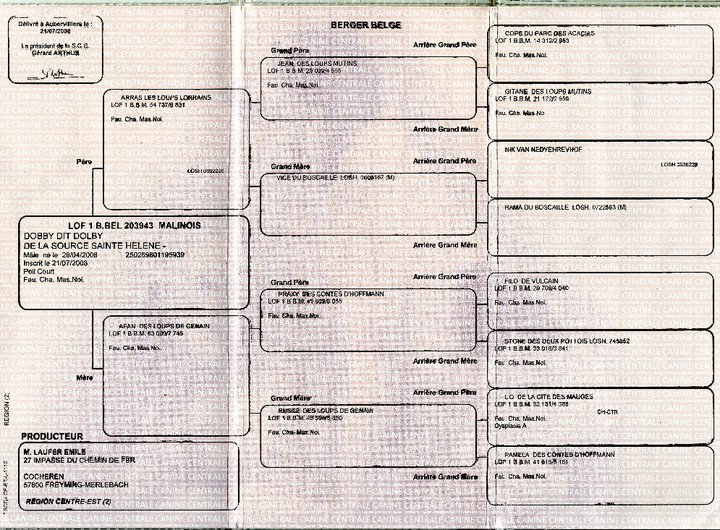 Délivré à Aubervilliers le :
21/07/2008
Le président de la S.C.C.
Gérard ARTHUR
BERGER BELGE
Grand Père
Arrière Grand Père
COPS DU PARC DES ACACIAS
LOF 1 B.B.M. 14 312/2 963
Fau. Cha. Mas.Noi.
JEAN DES LOUPS MUTINS
LOF 1 B.B.M.
Fau. Cha. Mas.Noi.
GITANE DES LOUPS MUTINS
LOF 1 B.B.M. 21 122/2 956
Fau. Cha. Mas.No
Arrière Grand Mère
ARRAS LES LOUPS LORRAINS
LOF 1 B.B.M. 54 737/8 831
Fau. Cha. Mas.Noi.
Père
Grand Mère
Arrière Grand Père
NIK VAN
VICE DU BOSCAILLE LOSH.
RAMA DU BOSCAILLE LOSH. 0722563 (M)
Arrière Grand Mère
LOF 1 B.BEL 203943 MALINOIS
DOBBY DIT DOLBY
DE LA SOURCE SAINTE HELENE -
Mâle né le 29/04/2008 250269801195939
Inscrit le 21/07/2008
Poil Court
Fau. Cha. Mas.Noi.
Grand Père
Arrière Grand Père
FILO DE VULCAIN
LOF 1 B.B.M. 29 709/4 040
Fau. Cha. Mas.Noi.
PRAXY DES CONTES D'HOFFMANN
LOF 1 B.B.M.
Fau. Cha. Mas.Noi.
STONE DES DEUX POTTOIS LOSH.
LOF 1 B.B.M.
Fau. Cha. Mas.Noi.
Arrière Grand Mère
DES LOUPS DE GENAIN
LOF 1 B.B.M.
Fau. Cha. Mas.Noi.
Mère
Grand Mère
Arrière Grand Père
DE LA CITE DES MAUGES
LOF 1 B.B.M.
CH-CTR
Fau. Cha. Mas.Noi.
Dysplasie A
DES LOUPS DE GENAIN
LOF 1 B.B.M.
Fau. Cha. Mas.Noi.
PAMELA DES CONTES D'HOFFMANN
LOF 1 B.B.M. 41 615/5 161
Fau. Cha. Mas.Noi.
Arrière Grand Mère
PRODUCTEUR
M. LAUFER EMILE
27 IMPASSE DU CHEMIN DE FER
COCHEREN
57800 FREYMING-MERLEBACH
REGION CENTRE-EST (2)
REGION (2)